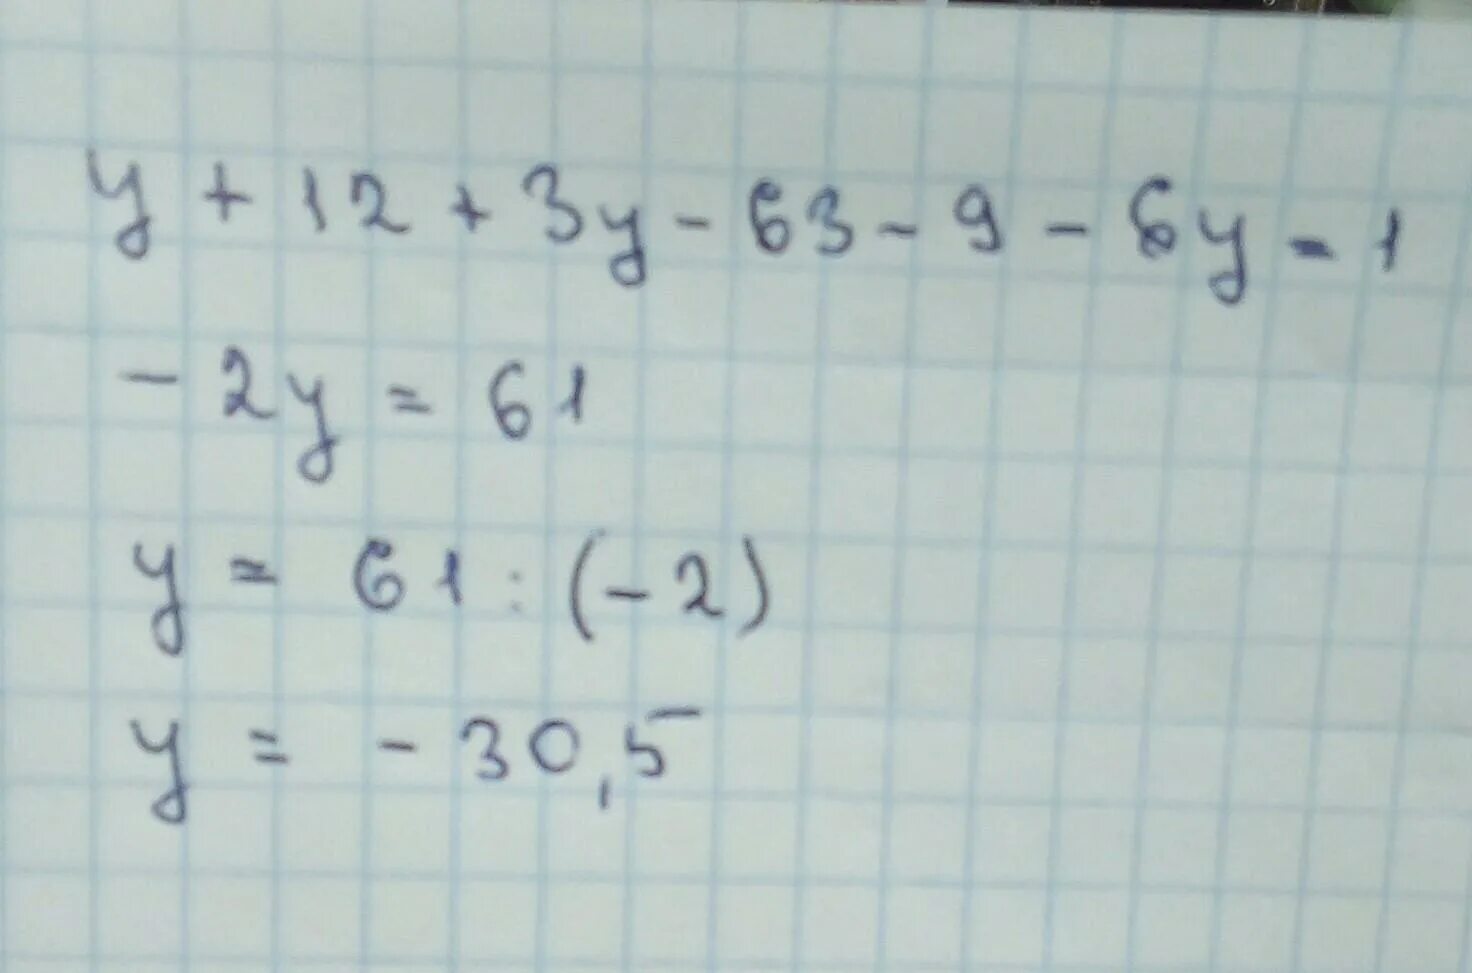 y + 12 + 3y - 63 - 9 - 6y - 1
- 2y = 61
y = 61 : (-2)
y = - 30,5